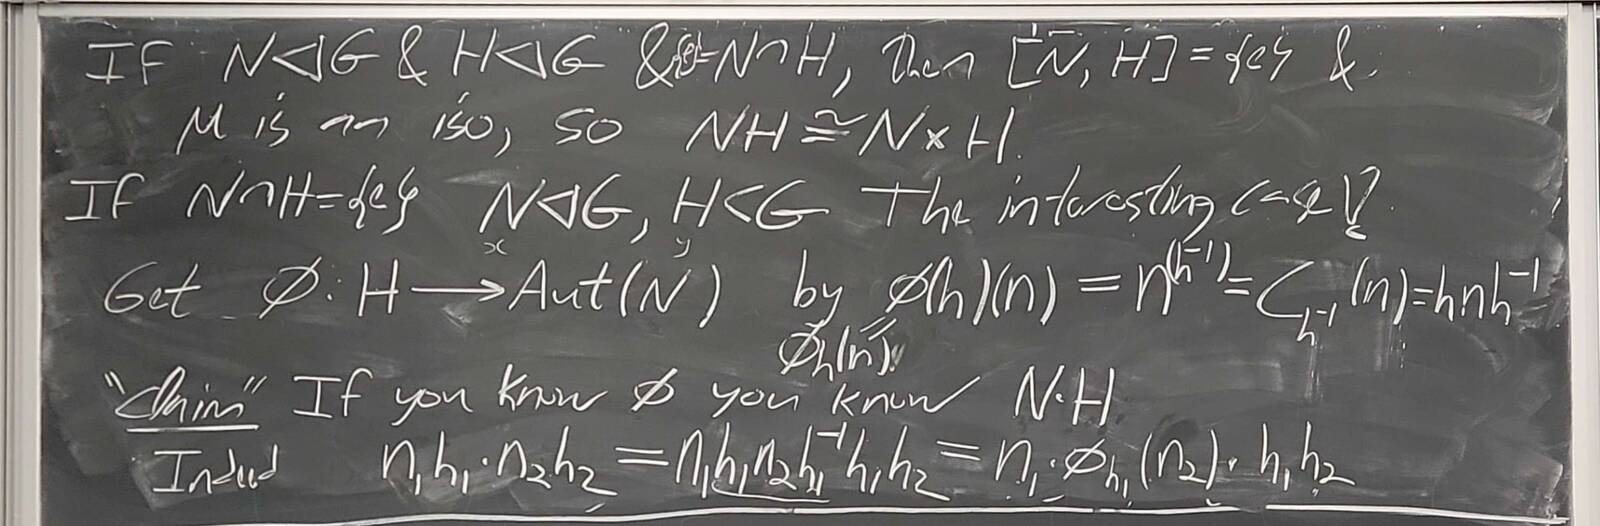 If N⊲G & H⊲G & {e}=N∩H, then [N, H] = {e} &
μ is an iso, so NH ≅ N × H.
If N∩H={e} N⊲G, H<G The interesting case!
x y
Get ∅: H ⟶ Aut(N) by ∅(h)(n) = n^(h^-1) = C_{h^-1}(n) = hnh^-1
∅_h(n)
"Claim" If you know ∅ you know N·H
Indeed n₁h₁·n₂h₂ = n₁h₁n₂h₁^-1h₁h₂ = n₁·∅_{h₁}(n₂)·h₁h₂